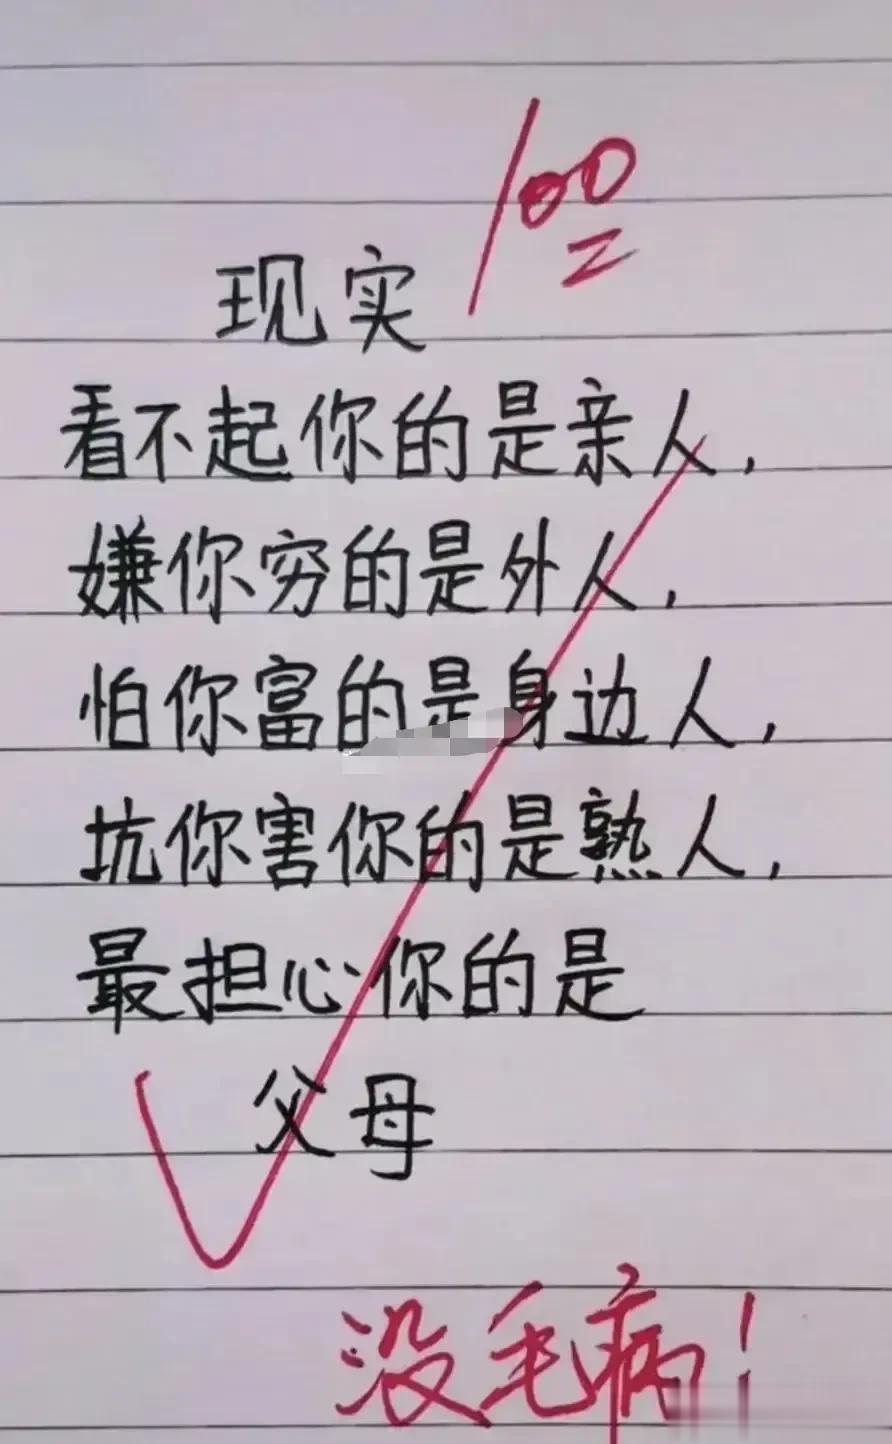 100
现实
看不起你的是亲人，
嫌你穷的是外人，
怕你富的是身边人，
坑你害你的是熟人，
最担心你的是
父母
没毛病！